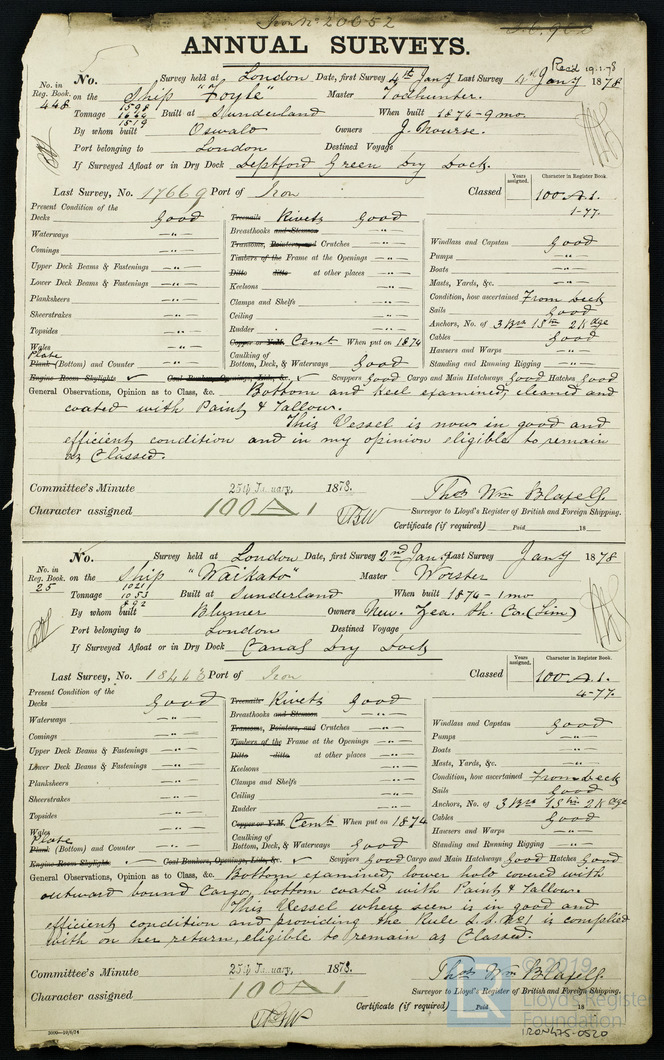 Iron No 20652
ANNUAL SURVEYS.
Recd 19.1.78
No. Survey held at London Date, first Survey 4th Jany Last Survey 4th Jany 1878
No. in Reg. Book. 448 on the Ship "Foyle" Master Todhunter.
Tonnage 1598 1644 1519 Built at Sunderland When built 1874-9mo.
By whom built Oswald Owners J. Nourse.
Port belonging to London Destined Voyage
If Surveyed Afloat or in Dry Dock Deptford Green Dry Dock.
Years assigned. Character in Register Book.
Last Survey, No. 17669 Port of Iron Classed 100 A.1.
1-77.
Present Condition of the
Decks Good Treenails Rivets Good
Waterways -"- Breasthooks and Stemson -"-
Comings -"- Transoms, Pointers, and Crutches -"- Windlass and Capstan Good
Timbers of the Frame at the Openings -"- Pumps -"-
Upper Deck Beams & Fastenings -"- Ditto ditto at other places -"- Boats -"-
Lower Deck Beams & Fastenings -"- Keelsons -"- Masts, Yards, &c. -"-
Planksheers -"- Clamps and Shelfs -"- Condition, how ascertained From Deck
Sheerstrakes -"- Ceiling -"- Sails Good
Topsides -"- Rudder -"- Anchors, No. of 3 Brs 1 Stm 2 Kdge
Wales -"- Copper or Y.M. Cemt When put on 1874 Cables Good
Plate
Plank (Bottom) and Counter -"- Caulking of Bottom, Deck, & Waterways Good Hawsers and Warps -"-
Standing and Running Rigging -"-
Engine Room Skylights ✓ Coal Bunkers, Openings, Lids, &c. ✓ Scuppers Good Cargo and Main Hatchways Good Hatches Good
General Observations, Opinion as to Class, &c. Bottom and keel examined, cleaned and
coated with Paint & Tallow.
This Vessel is now in good and
efficient condition and in my opinion eligible to remain
as Classed.
Committee's Minute 25th January, 1878. Thos Wm Blaxell
Character assigned 100 A 1 Surveyor to Lloyd's Register of British and Foreign Shipping.
Certificate (if required) Paid 18
No. Survey held at London Date, first Survey 2nd Jany Last Survey Jany 1878
No. in Reg. Book. 25 on the Ship "Waikato" Master Worster
Tonnage 1021 1053 892 Built at Sunderland When built 1874-1mo
By whom built Blumer Owners New. Zea. Sh. Co. (Lim)
Port belonging to London Destined Voyage
If Surveyed Afloat or in Dry Dock Canal Dry Dock
Years assigned. Character in Register Book.
Last Survey, No. Port of Iron Classed 100 A.1.
4-77.
Present Condition of the
Decks Good Treenails Rivets Good
Waterways -"- Breasthooks and Stemson -"-
Comings -"- Transoms, Pointers, and Crutches -"- Windlass and Capstan Good
Timbers of the Frame at the Openings -"- Pumps -"-
Upper Deck Beams & Fastenings -"- Ditto ditto at other places -"- Boats -"-
Lower Deck Beams & Fastenings -"- Keelsons -"- Masts, Yards, &c. -"-
Planksheers -"- Clamps and Shelfs -"- Condition, how ascertained From Deck
Sheerstrakes -"- Ceiling -"- Sails Good
Topsides -"- Rudder -"- Anchors, No. of 3 Brs 1 Stm 2 Kdge
Wales -"- Copper or Y.M. Cemt When put on 1874 Cables Good
Plate
Plank (Bottom) and Counter -"- Caulking of Bottom, Deck, & Waterways Good Hawsers and Warps -"-
Standing and Running Rigging -"-
Engine Room Skylights Coal Bunkers, Openings, Lids, &c. ✓ Scuppers Good Cargo and Main Hatchways Good Hatches Good
General Observations, Opinion as to Class, &c. Bottom examined, lower hold covered with
outward bound Cargo, bottom coated with Paint & Tallow.
This Vessel where seen is in good and
efficient condition and providing the Rule S.S. No 1 is complied
with on her return, eligible to remain as Classed.
Committee's Minute 25th January, 1878. Thos Wm Blaxell
Character assigned 100 A 1 Surveyor to Lloyd's Register of British and Foreign Shipping.
Certificate (if required) Paid 18
© 2019
LR
Lloyd's Register
Foundation
IRON475-0520